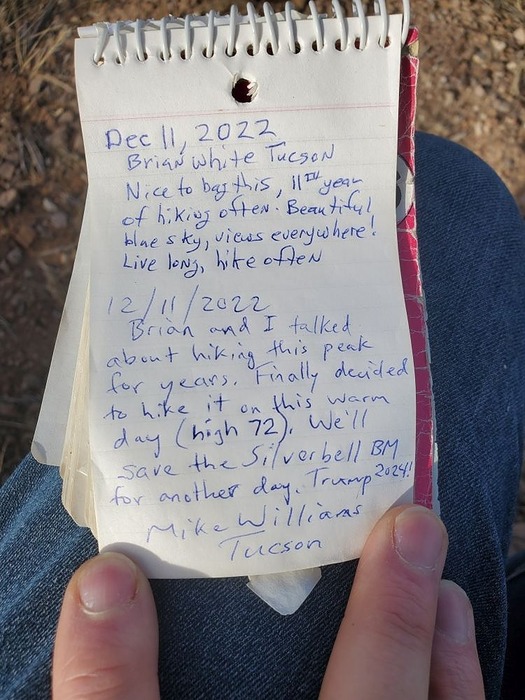 Dec 11, 2022
Brian White Tucson
Nice to bag this, 11TH year
of hiking often. Beautiful
blue sky, views everywhere!
Live long, hike often
12/11/2022
Brian and I talked
about hiking this peak
for years. Finally decided
to hike it on this warm
day (high 72). We'll
save the Silverbell BM
for another day. Trump 2024!
Mike Williams
Tucson